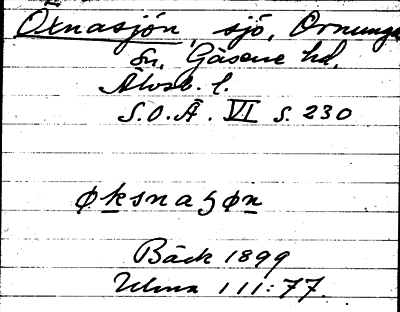 Öxnasjön, sjö, Ornunga
sn, Gäsene hd,
Älvsb. l.
S.O.Ä. VI s. 230
øksnaʒøn
Bäck 1899
Ulma 111:77.